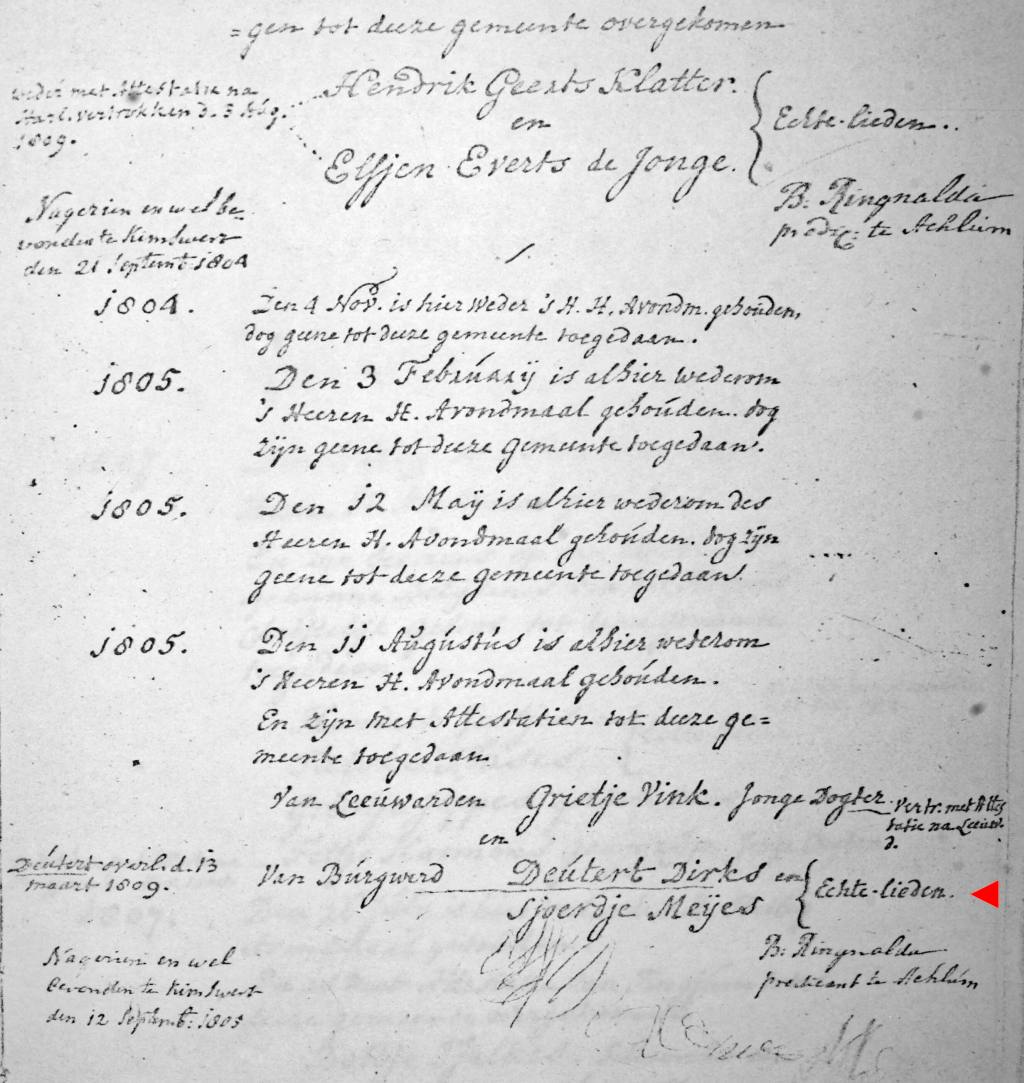 =gen tot deeze gemeente overgekomen
weder met Attestatie na
Harl. vertrokken d. 3 Aug.
1809.
Hendrik Geerts Klatter.
en
Elsjen Everts de Jonge.
Echte-lieden..
B: Ringnalda
predic: te Achlum
Nagezien en wel be-
vonden te Kimswert
den 21 Septemb: 1804
1804.
Den 4 Nov. is hier weder 's H. H. Avondm. gehouden,
dog geene tot deeze gemeente toegedaan.
1805.
Den 3 February is alhier wederom
's Heeren H. Avondmaal gehouden. dog
zijn geene tot deeze Gemeente toegedaan.
1805.
Den 12 Maÿ is alhier wederom des
Heeren H. Avondmaal gehouden. dog zÿn
geene tot deeze gemeente toegedaan.
1805.
Den 11 Augustus is alhier wederom
's Heeren H. Avondmaal gehouden.
En zÿn met Attestatien tot deeze ge=
meente toegedaan
Van Leeuwarden Grietje Vink. Jonge Dogter
Vertr. met Attes
tatie na Leeuw.
en
Deutert overl. d. 13
maart 1809.
Van Burgwerd Deutert Dirks en
Sjoerdje Meÿes
Echte-lieden.
B: Ringnalda
predicant te Achlum
Nagezien en wel
bevonden te Kimswert
den 12 Septemb: 1805